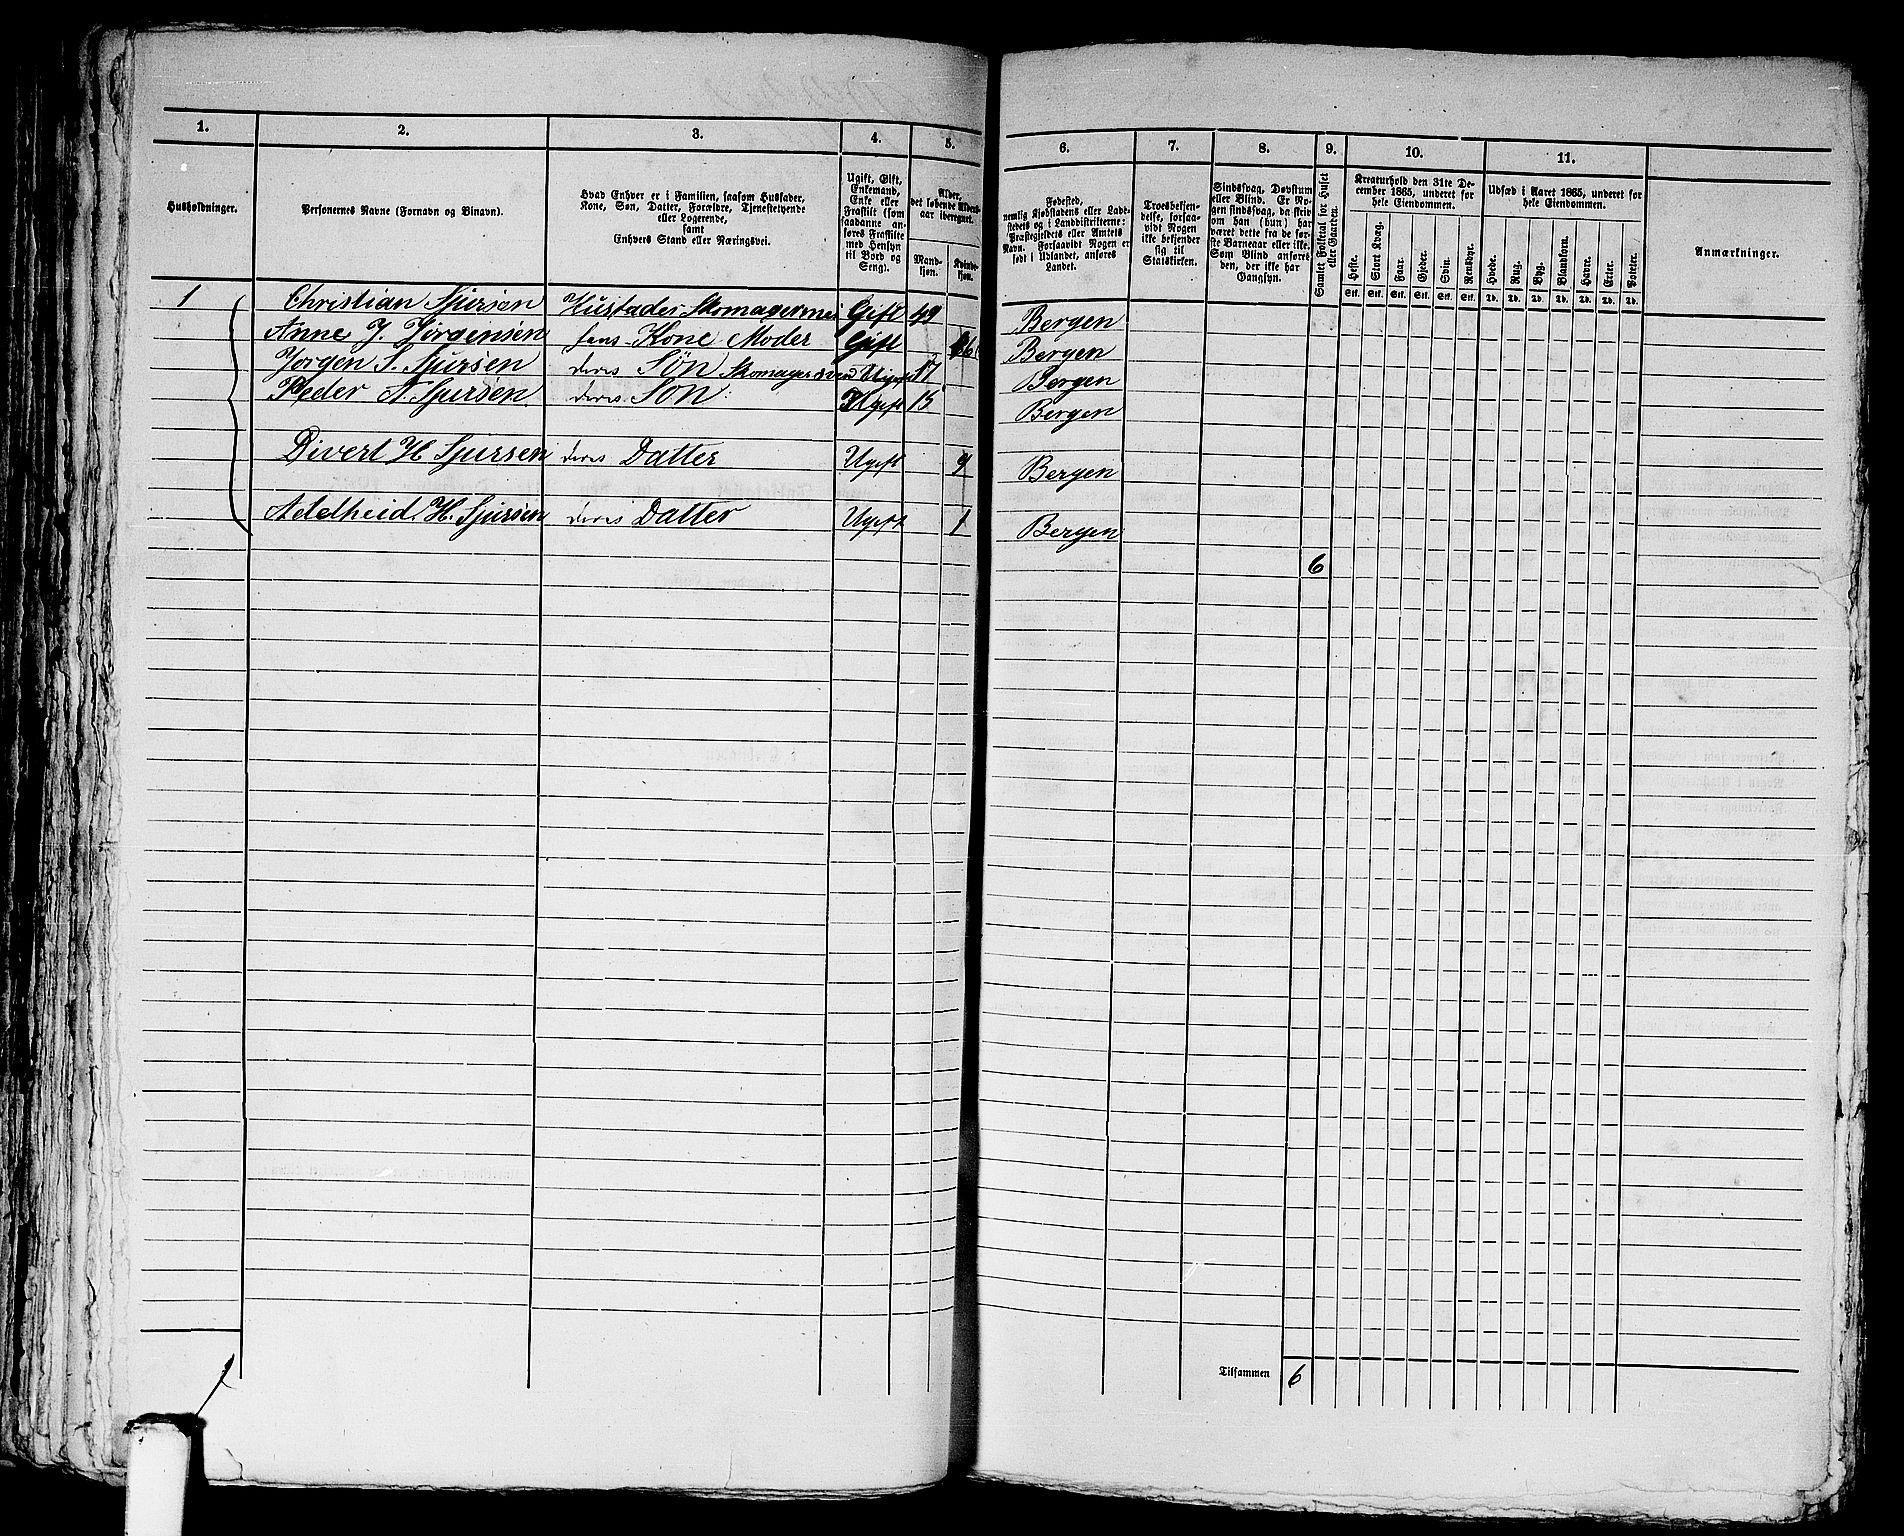 1. 2. 3. 4. 5. 6. 7. 8. 9. 10. 11.
Husholdninger.
Personernes Navne (Fornavn og Binavn).
Hvad Enhver er i Familien, saasom Husfader,
Kone, Søn, Datter, Forældre, Tjenestetyende
eller Logerende,
samt
Enhvers Stand eller Næringsvei.
Ugift, Gift,
Enkemand,
Enke eller
Fraskilt (som
saadanne an-
føres Fraskilte
med Hensyn
til Bord og
Seng).
Alder,
det løbende Alders-
aar iberegnet.
Mand-
kjøn.
Kvinde-
kjøn.
Fødested,
nemlig Kjøbstadens eller Lad-
stedets og i Landdistrikterne:
Præstegjeldets eller Amtets
Navn. Forsaavidt Nogen er
født i Udlandet, anføres
Landet.
Troesbekjen-
delse, forsaa-
vidt Nogen
ikke bekjender
sig til
Statskirken.
Sindssvag, Døvstum
eller Blind. Er No-
gen sindssvag, da skriv
om han (hun) har
været dette fra de før-
ste Barneaar eller ikke.
Som Blind anføres
den, der ikke har
Gangsyn.
Samlet Folketal for Huset
eller Gaarden.
Kreaturhold den 31te De-
cember 1865, underet for
hele Eiendommen.
Heste. Stort Kvæg. Faar. Gjeder. Svin. Rensdyr.
Stk. Stk. Stk. Stk. Stk. Stk.
Udsæd i Aaret 1865, underet for
hele Eiendommen.
Hvede. Rug. Byg. Blandkorn. Havre. Erter. Poteter.
Td. Td. Td. Td. Td. Td. Td.
Anmærkninger.
1 Christian Sjursen Husfader Skomagermes Gift 49 Bergen
Anne J. Jørgensen hans Kone Moder Gift Bergen
Jørgen S. Sjursen deres Søn Skomagersvend Ugift 17 Bergen
Peder A Sjursen deres Søn Ugift 15 Bergen
Divert H Sjursen deres Datter Ugift 9 Bergen
Adelheid. H. Sjursen deres Datter Ugift 1 Bergen
6
1
Tilsammen 6